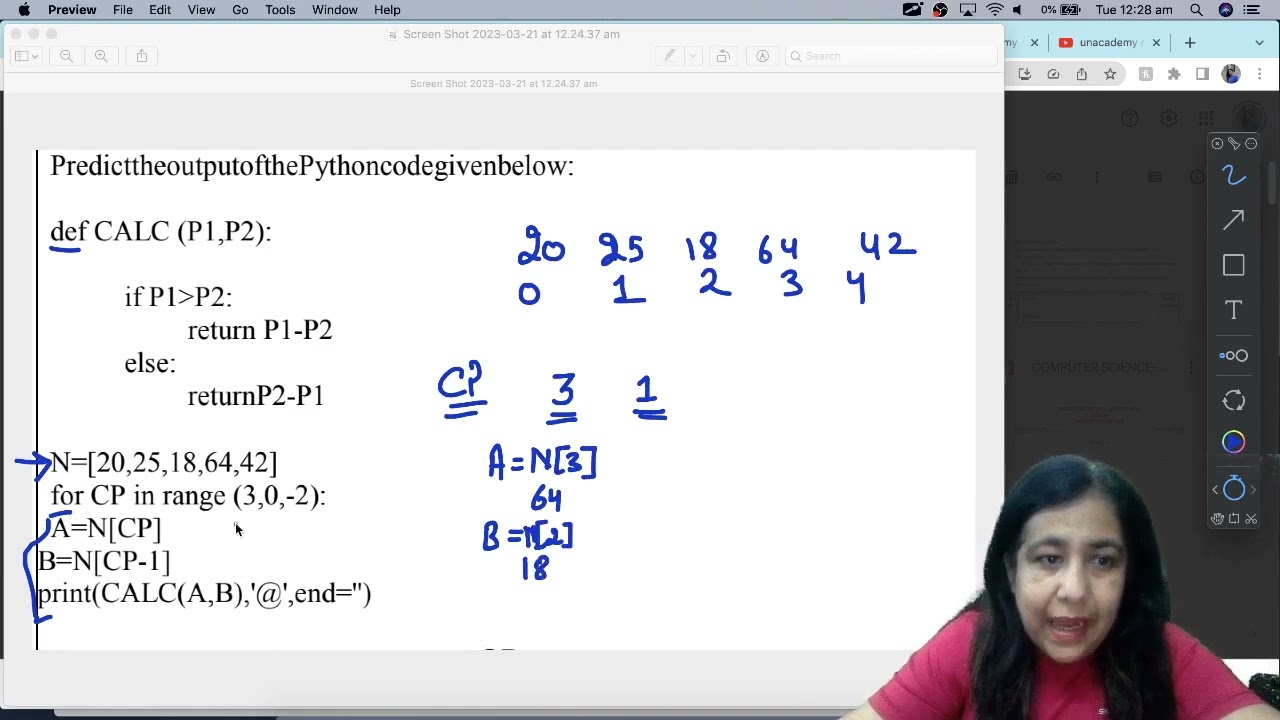 Preview File Edit View Go Tools Window Help 0% Tue 12:28 am
Screen Shot 2023-03-21 at 12.24.37 am
my unacademy
Search
Screen Shot 2023-03-21 at 12.24.37 am
PredicttheoutputofthePythoncodegivenbelow:
def CALC (P1,P2):
20 25 18 64 42
0 1 2 3 4
if P1>P2:
return P1-P2
else:
returnP2-P1
CP 3 1
COMPUTER SCIENCE-...
N=[20,25,18,64,42]
A=N[3]
for CP in range (3,0,-2):
64
A=N[CP]
B=N[2]
B=N[CP-1]
18
print(CALC(A,B),'@',end='')
T